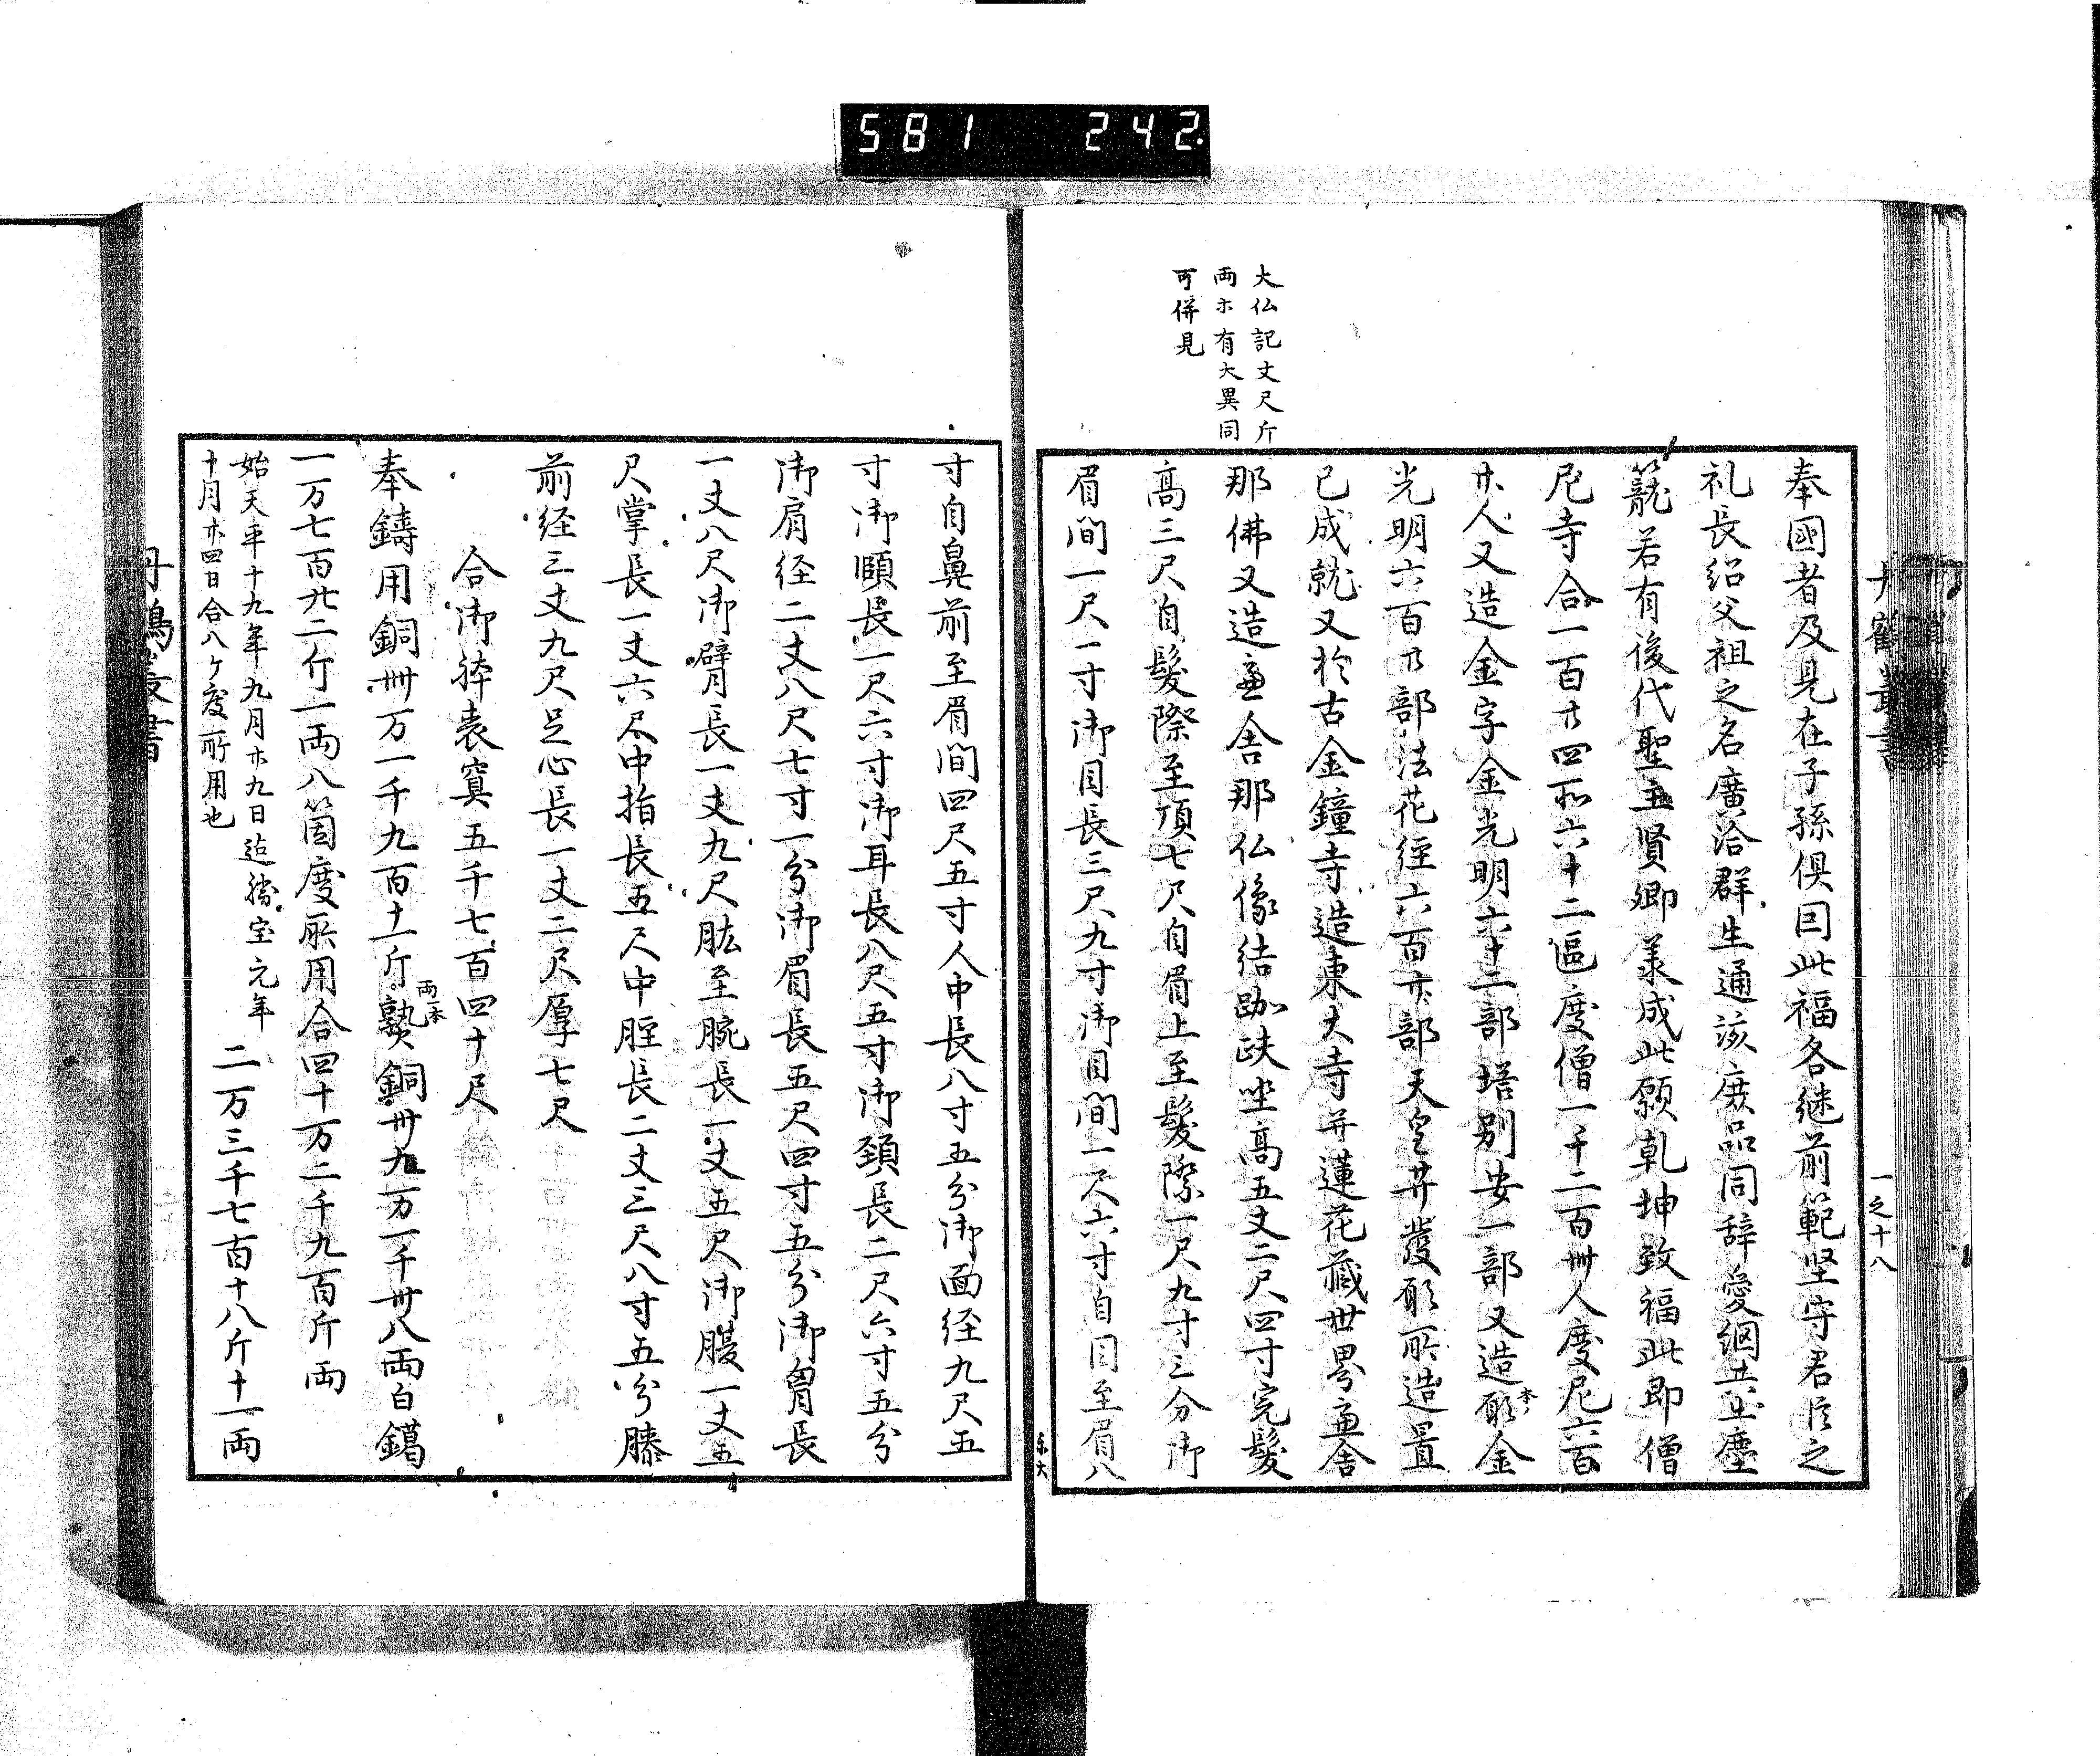 581 242
丹鶴叢書
一之十八
大仏記丈尺斤
両ホ有大異同
可併見
奉國者及見在子孫俱囙此福各継前範坚守君臣之
礼長紹父祖之名廣洽群生通該庶品同辞愛網共出塵
籠若有後代聖主賢卿羕成此願乹坤致福此即僧
尼寺合一百廿四所六十二區度僧一千二百卌人度尼六百
廿人又造金字金光明六十二部塔別安一部又造願金
光明六百廿部法花経六百廿部天皇并發願所造畳
已成就又於古金鐘寺造東大寺并蓮花蔵世界盧舎
那佛又造盧舎那仏像結跏趺坐高五丈二尺四寸完髪
高三尺自髮際至頂七尺自眉上至髮際一尺九寸三分御
眉間一尺一寸御目長三尺九寸御目間一尺六寸自目至眉八
東大
寸自鼻前至眉間四尺五寸人中長八寸五分御面経九尺五
寸御頤長一尺六寸御耳長八尺五寸御頚長二尺六寸五分
御肩径二丈八尺七寸一分御眉長五尺四寸五分御胷長
一丈八尺御臂長一丈九尺肱至腕長一丈五尺御腹一丈五
尺掌長一丈六尺中指長五尺中脛長二丈三尺八寸五分膝
前経三丈九尺足心長一丈二尺厚七尺
合御躰表實五千七百四十尺
奉鑄用銅卌万一千九百十一斤両一本熟銅卅九万一千卅八両白鑞
一万七百廿二斤一両八箇度所用合四十万二千九百斤両
始天平十九年九月廿九日迄勝宝元年
十月廿四日合八ケ度所用也
二万三千七百十八斤十一両
丹鶴叢書